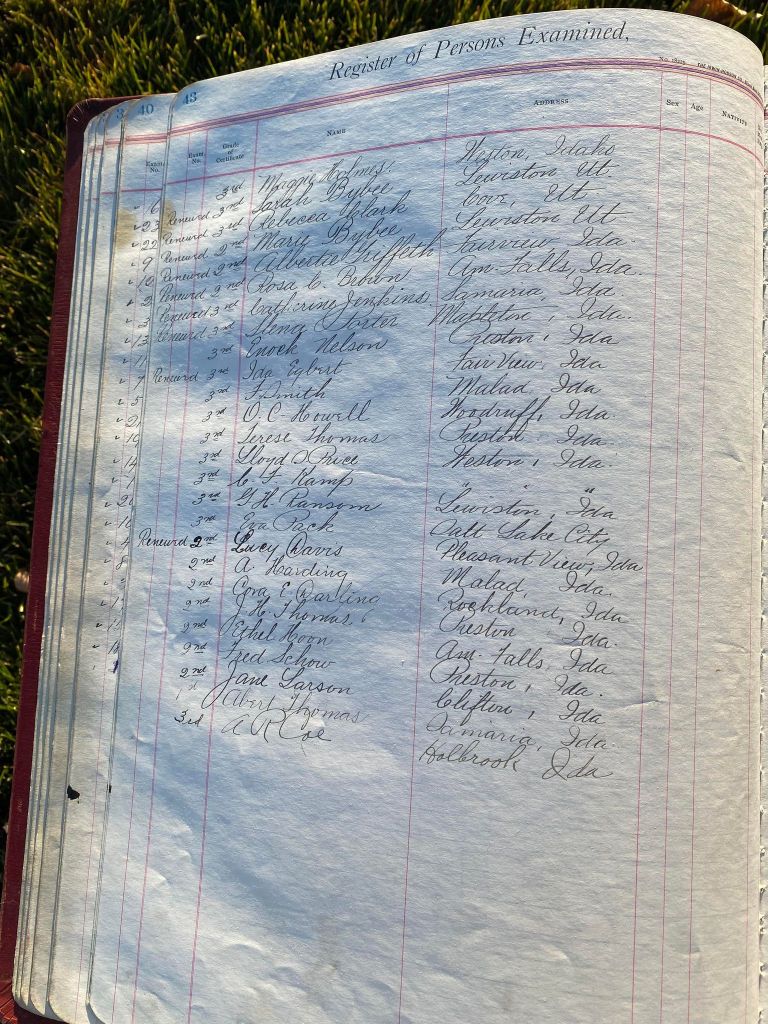 3 40 43
Register of Persons Examined,
Exam. No. Exam. No. Grade of Certificate NAME ADDRESS Sex Age NATIVITY
6 3rd Maggie Holmes Weston, Idaho
23 Renewed 3rd Sarah Bybee Lewiston Ut.
22 Renewed 3rd Rebecca Clark Cove, Ut.
9 Renewed 2nd Mary Bybee Lewiston Ut
10 Renewed 2nd Alberta Griffeth Fairview, Ida.
2 Renewed 2nd Rosa C. Brown Am. Falls, Ida.
3 Renewed 3rd Catherine Jenkins Samaria, Ida
13 Renewed 3rd Foster Mapleton, Ida.
11 3rd Enock Nelson Preston, Ida
7 Renewed 3rd Ida Egbert Fair View, Ida
5 3rd F. Smith Malad, Ida
2 3rd O. C. Howell Woodruff, Ida
19 3rd Terese Thomas Preston, Ida.
14 3rd Lloyd O Price Weston, Ida.
1 3rd C. F. Kamp " "
20 3rd G. H. Ransom Lewiston, Ida
16 3rd Eva Pack Salt Lake City
4 Renewed 2nd Lucy Davis Pleasant View, Ida
8 2nd A. Harding Malad, Ida.
2nd Cora E. Darling Rockland, Ida
2nd J. H. Thomas Preston, Ida.
2nd Ethel Moon Am. Falls, Ida
2nd Fred Schow Preston, Ida.
2nd Jane Larson Clifton, Ida
Abert Thomas Samaria, Ida.
3rd A R Coe Holbrook Ida